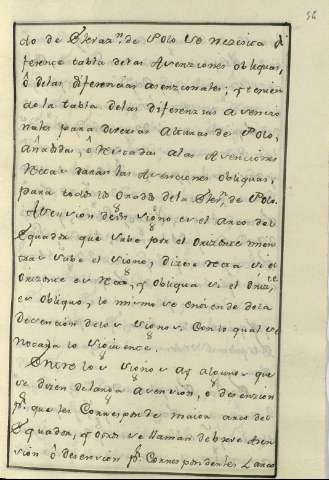 56
do de Elevazn. de Polo se nezesita di
ferente tabla de las Asenziones obliquas,
ô de las diferencias asenzionales; y tenien
do la tabla de las diferenzias asencio
nales para diversas Alturas de Polo,
Añadidas, o Restadas a las Asenciones
Rectas daran las Asenciones obliquas,
para todos los Grados de la Elevn. de Polo.
Asension de un signo es el arco del
Equador que sube por el Orizonte mien
tras sube el signo, dizese Recta si el
Orizonte es Recto, y obliqua si el Orizte.
es obliquo, lo mismo se entiende de la
decencion de los signos. Con lo qual se
nota lo siguiente.
Entre los signos ay algunos que
se dizen de larga asension, o desension
pr. que les Corresponde maior arco del
Equador, y otros se llaman de breve Asen
sion ô desension pr. Corresponderles